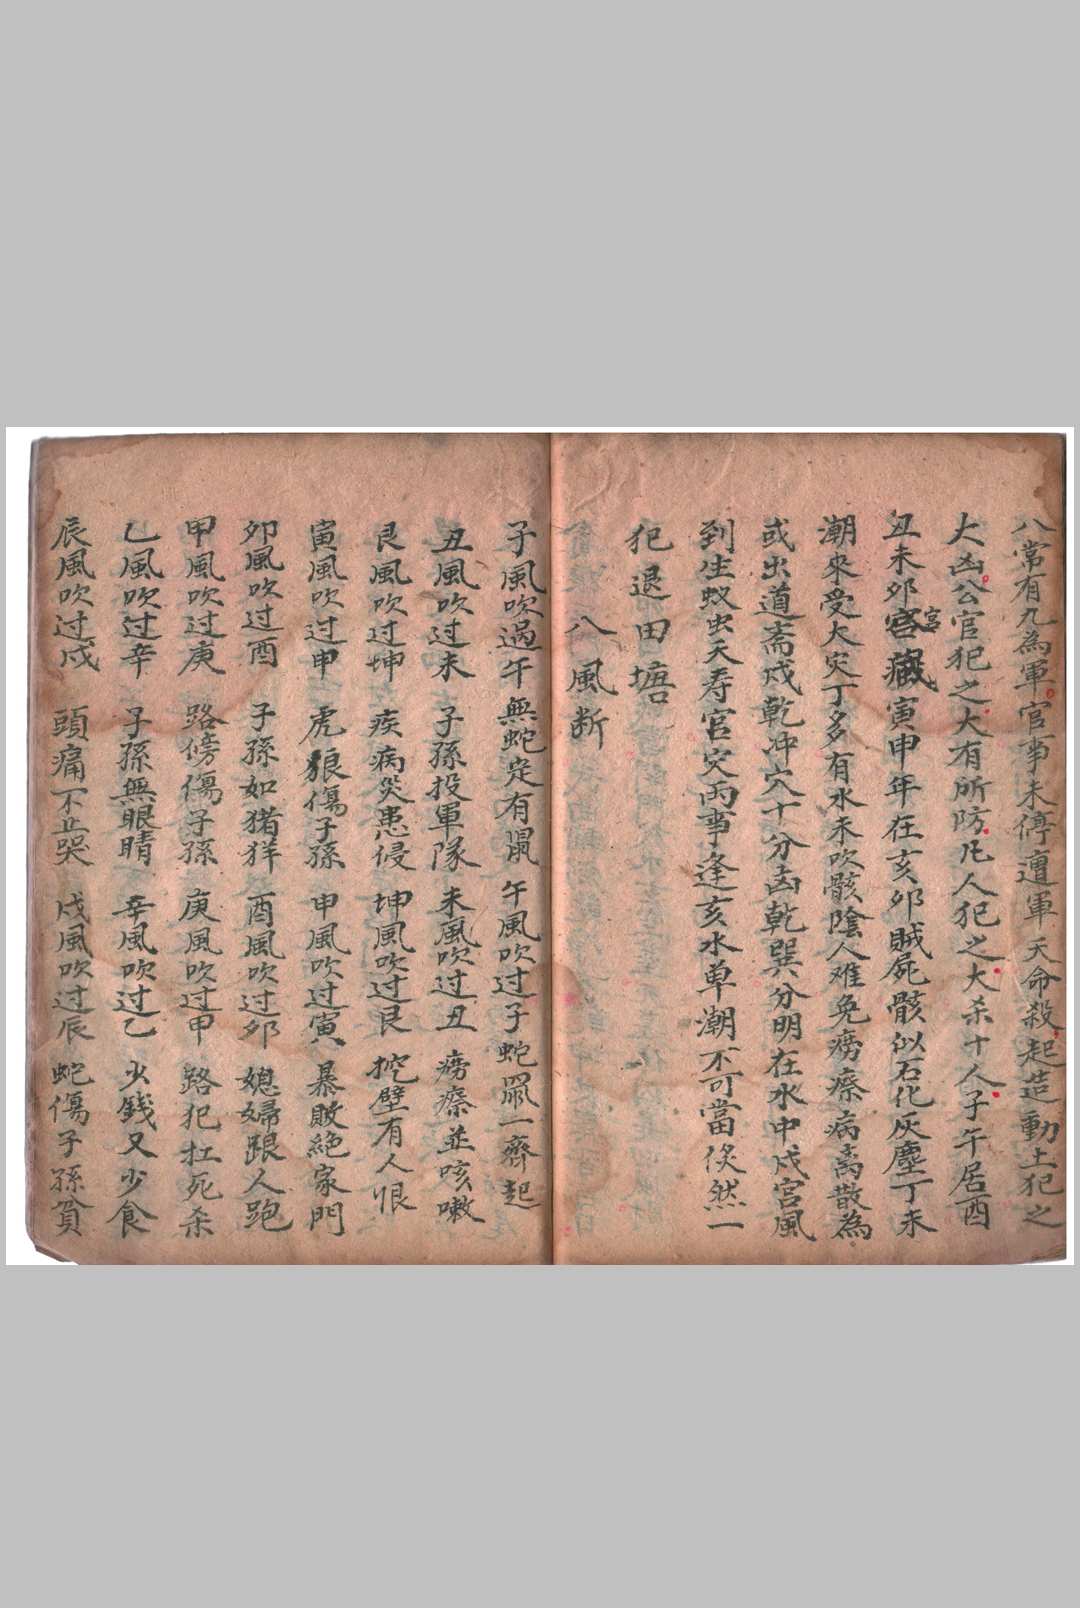 八常有九為軍官事未停遭軍天命殺起造動土犯之
大凶公官犯之大有所防凡人犯之大杀十人子午居酉
丑未卯宮藏寅申年在亥卯賊屍骸似石化灰塵丁未
潮來受大灾丁多有水未吹骸陰人难免痨瘵病离散為
或出道斋戌乾冲穴十分凶乾巽分明在水中戌宮風
到生蚁虫天寿官灾兩事逢亥水单潮不可當倐然一
犯退田塘
八風断
子風吹過午無蛇定有鼠 午風吹过子蛇鼠一齊起
丑風吹过未 子孫投軍隊 未風吹过丑 痨瘵並咳嗽
艮風吹过坤 疾病災患侵 坤風吹过艮 挖壁有人恨
寅風吹过申 虎狼傷子孫 申風吹过寅 暴敗絕家門
卯風吹过酉 子孫如猪羊 酉風吹过卯 媳婦跟人跑
甲風吹过庚 路傍傷子孫 庚風吹过甲 路犯扛死杀
乙風吹过辛 子孫無眼睛 辛風吹过乙 少錢又少食
辰風吹过戌 頭痛不止哭 戌風吹过辰 蛇傷子孫貧